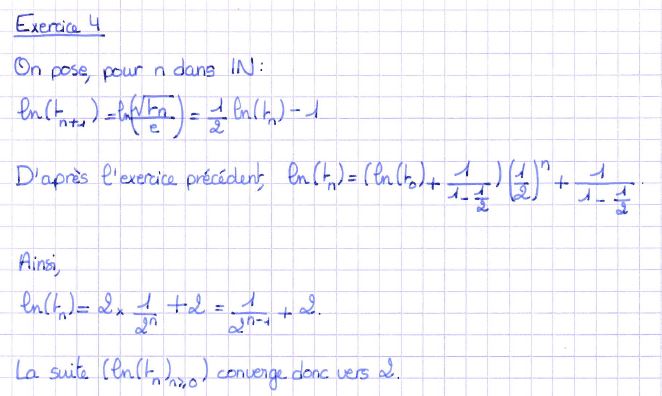 Exercice 4
On pose, pour n dans IN :
ln(t_{n+1}) = ln(√t_n / e) = 1/2 ln(t_n) - 1
D'après l'exercice précédent, ln(t_n) = (ln(t_0) + 1/(1 - 1/2)) (1/2)^n + 1/(1 - 1/2).
Ainsi,
ln(t_n) = 2 × 1/2^n + 2 = 1/2^{n-1} + 2.
La suite (ln(t_n)_{n≥0}) converge donc vers 2.